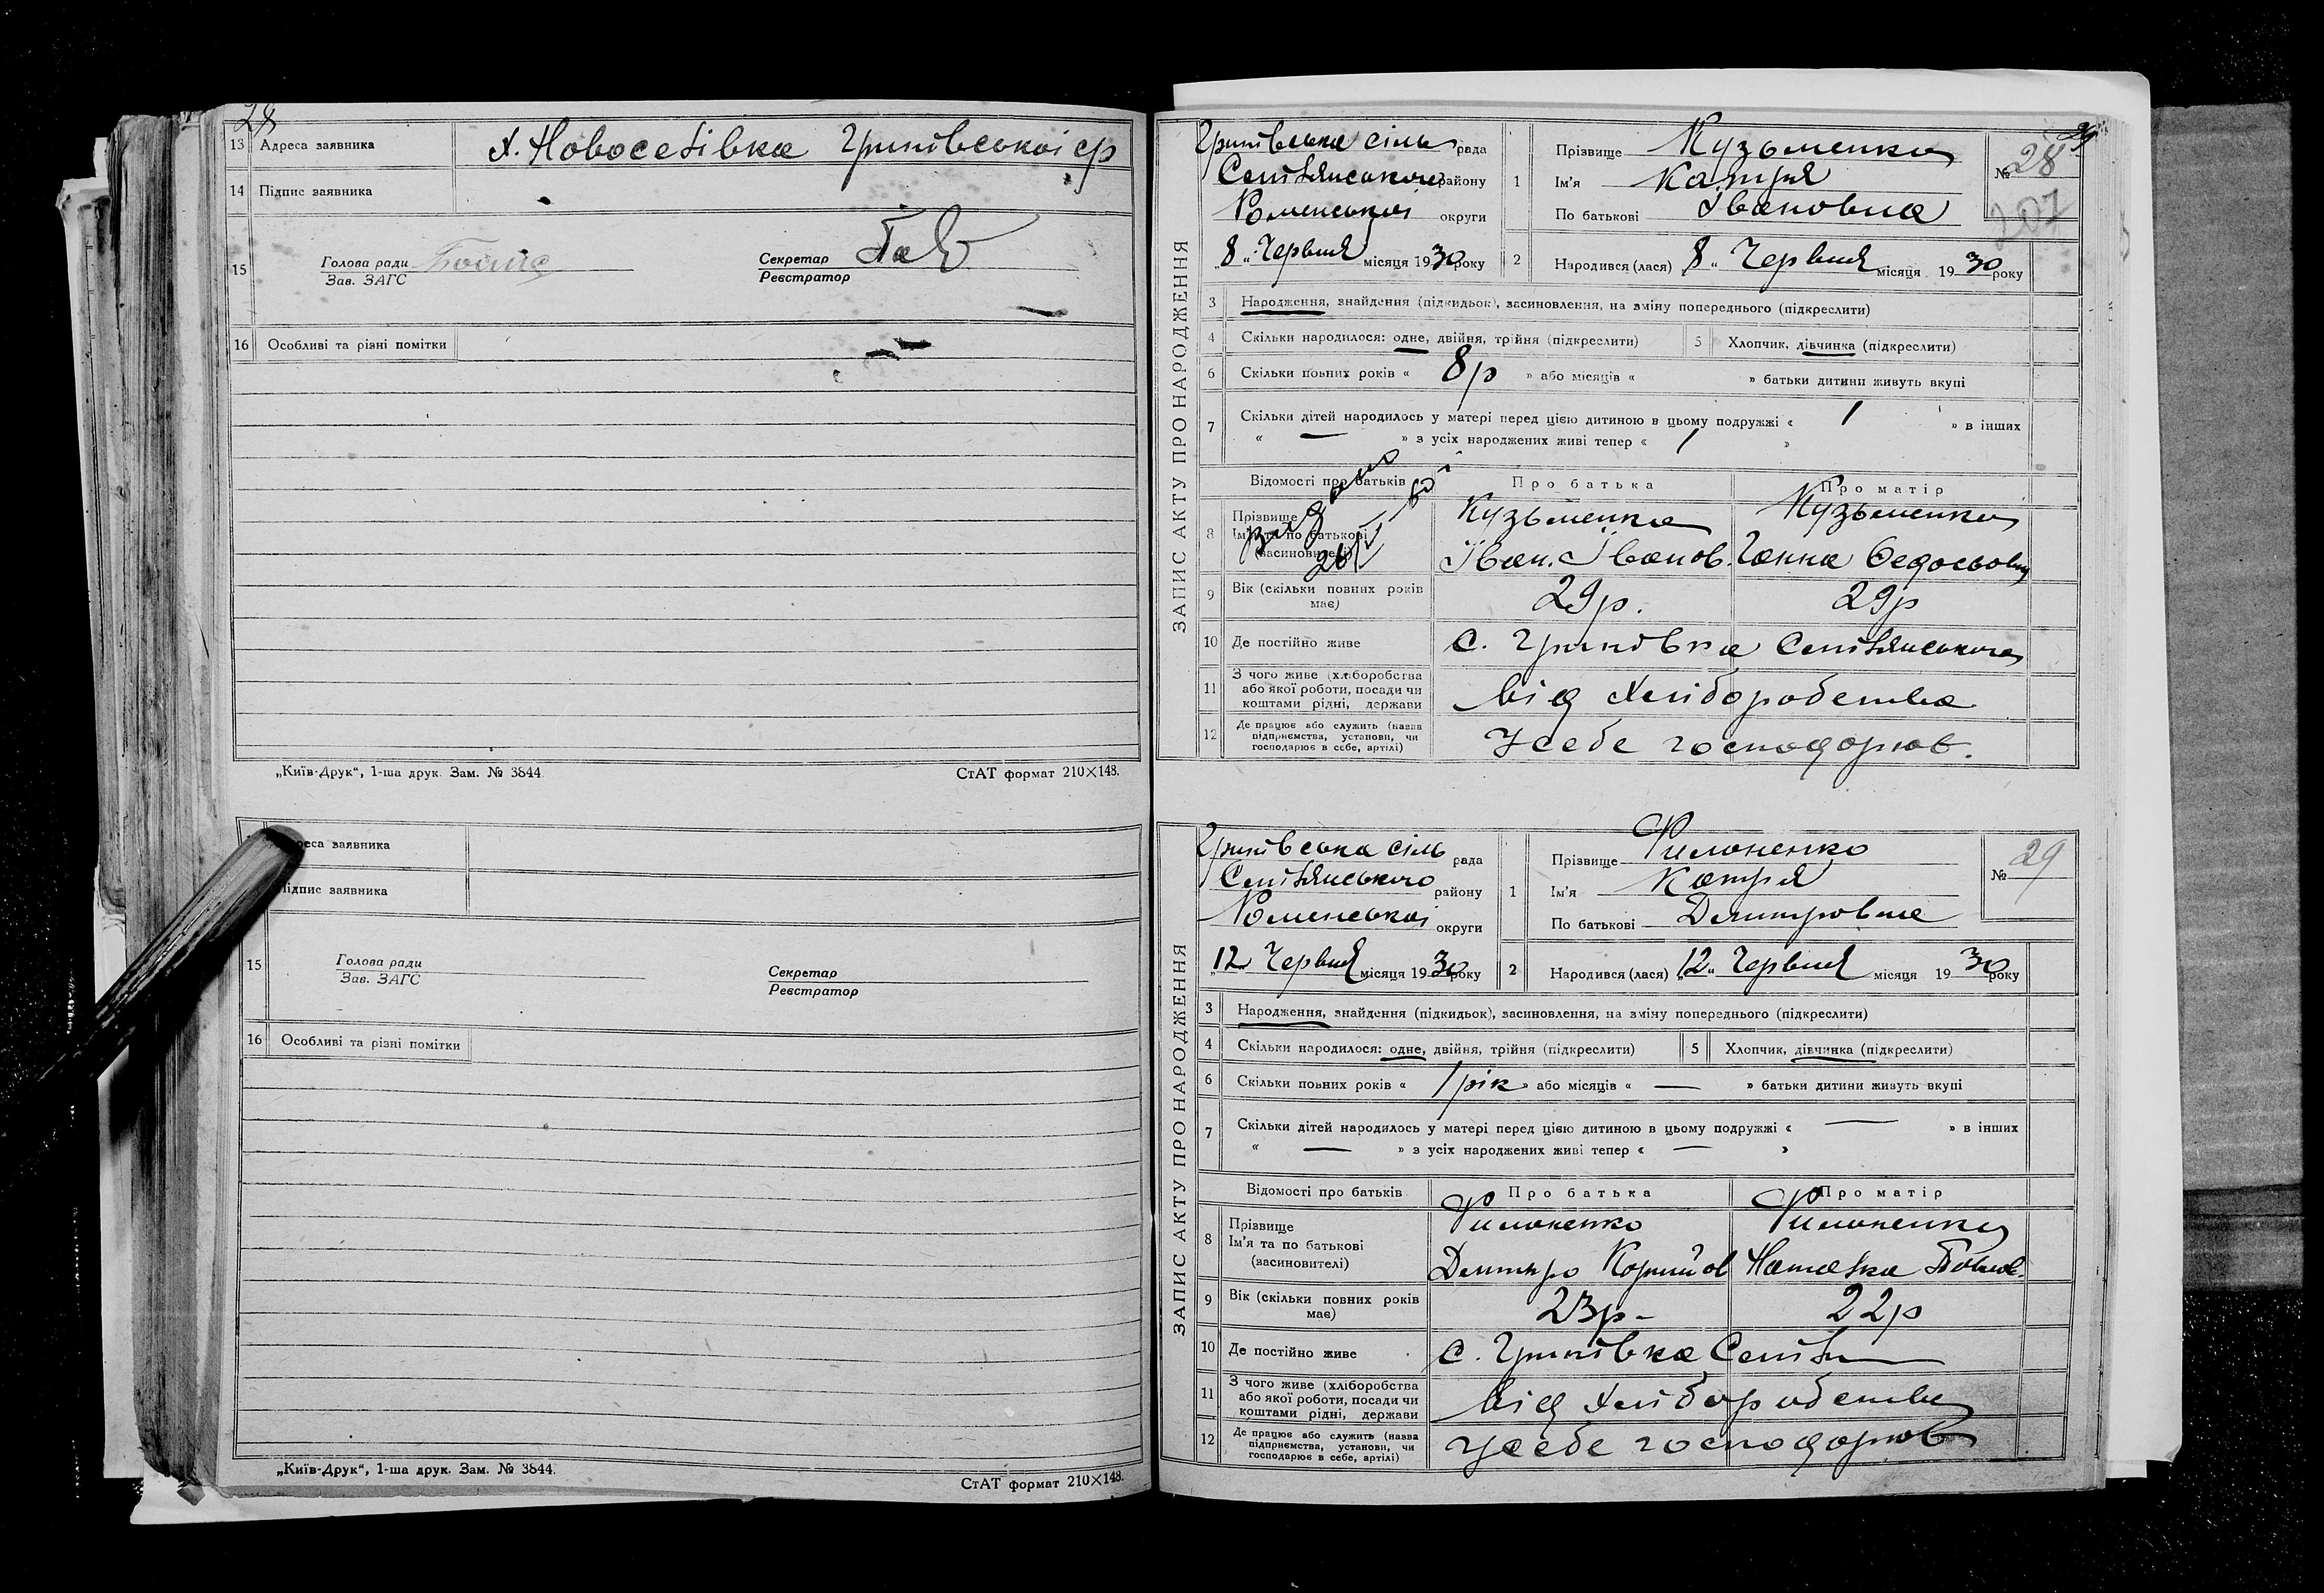 28
13 Адреса заявника х. Новоселівка Грипівської ср
14 Підпис заявника
15 Голова ради
Зав. ЗАГС
Секретар
Реєстратор
16 Особливі та різні помітки
„Київ-Друк“, 1-ша друк. Зам. № 3844.
СтАТ формат 210×148.
Адреса заявника
Підпис заявника
15 Голова ради
Зав. ЗАГС
Секретар
Реєстратор
16 Особливі та різні помітки
„Київ-Друк“, 1-ша друк. Зам. № 3844.
СтАТ формат 210×148.
ЗАПИС АКТУ ПРО НАРОДЖЕННЯ
сіль рада
району
Роменської округи
„8„ Червня місяця 1930 року
1 Прізвище Кузьменко
Ім'я Катря
По батькові Івановна
№ 28
207
2 Народився (лася) „8„ Червня місяця 1930 року
3 Народження, знайдення (підкидьок), засиновлення, на зміну попереднього (підкреслити)
4 Скільки народилося: одне, двійня, трійня (підкреслити) 5 Хлопчик, дівчинка (підкреслити)
6 Скільки повних років « 8р » або місяців « » батьки дитини живуть вкупі
7 Скільки дітей народилось у матері перед цією дитиною в цьому подружжі « 1 » в інших
« — » з усіх народжених живі тепер « 1 »
Відомості про батьків Про батька Про матір
8 Прізвище Кузьменко Кузьменко
Ім'я та по батькові Іван. Іванов. Ганна Федосьовн
(засиновителі)
9 Вік (скільки повних років має) 29р. 29р
10 Де постійно живе с.
11 З чого живе (хліборобства або якої роботи, посади чи коштами рідні, держави від хліборобства
12 Де працює або служить (назва підприємства, установи, чи господарює в себе, артілі) У себе господарюв.
ЗАПИС АКТУ ПРО НАРОДЖЕННЯ
сіль рада
району
Роменської округи
„12„ Червня місяця 1930 року
1 Прізвище Филоненко
Ім'я Катря
По батькові Дмитровна
№ 29
2 Народився (лася) „12„ Червня місяця 1930 року
3 Народження, знайдення (підкидьок), засиновлення, на зміну попереднього (підкреслити)
4 Скільки народилося: одне, двійня, трійня (підкреслити) 5 Хлопчик, дівчинка (підкреслити)
6 Скільки повних років « 1 рік » або місяців « — » батьки дитини живуть вкупі
7 Скільки дітей народилось у матері перед цією дитиною в цьому подружжі « — » в інших
« — » з усіх народжених живі тепер « — »
Відомості про батьків Про батька Про матір
8 Прізвище Филоненко Филоненко
Ім'я та по батькові Дмитро Корнийов Наталка
(засиновителі)
9 Вік (скільки повних років має) 23р- 22р
10 Де постійно живе с.
11 З чого живе (хліборобства або якої роботи, посади чи коштами рідні, держави від хліборобства
12 Де працює або служить (назва підприємства, установи, чи господарює в себе, артілі) У себе господарюв